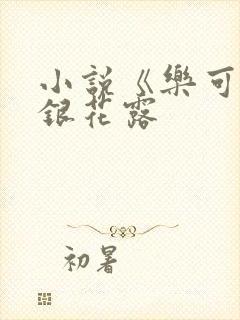 小說《樂可
銀花露
初暑